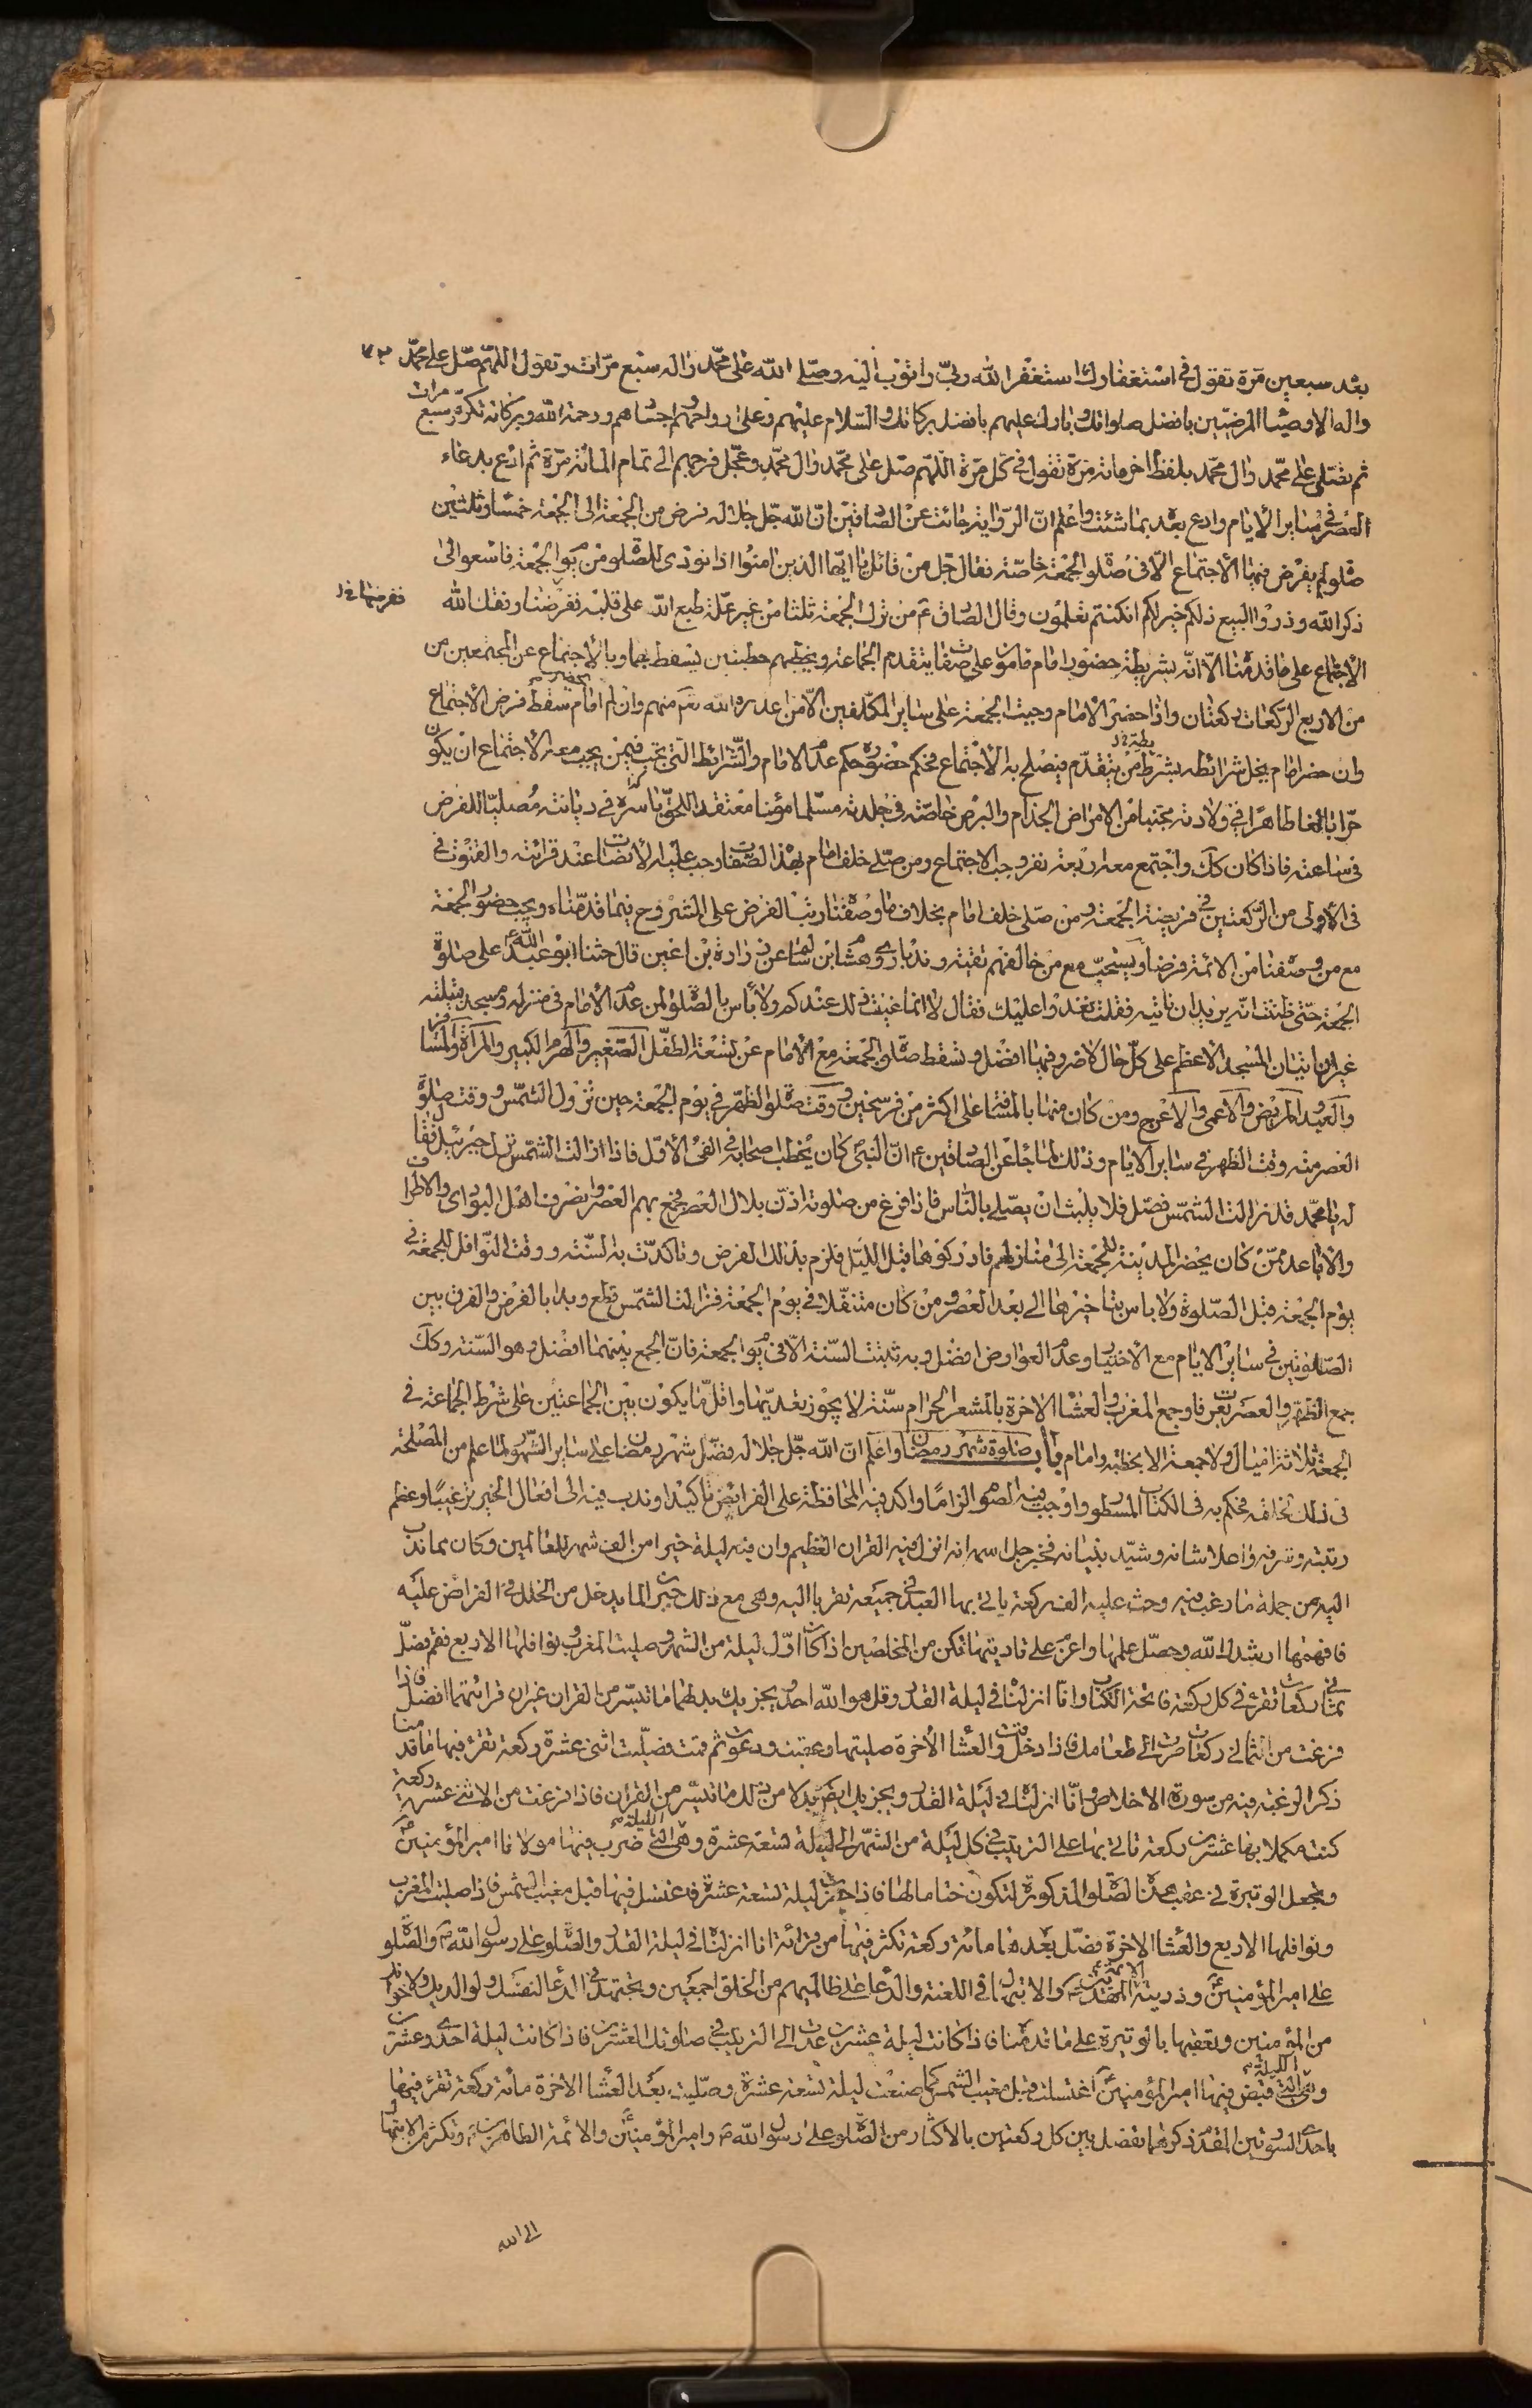 بعد سبعين مرة تقول في استغفارك استغفر الله ربي واتوب اليه وصلى الله على محمد واله سبع مرات وتقول اللهم صل على محمد
واله الاوصيا المرضيين بافضل صلواتك وبارك عليهم بافضل بركاتك والسلام عليهم وعلى ارواحهم واجسادهم ورحمة الله وبركاته تكرره سبع مرات
ثم تصلى على محمد وال محمد بلفظ اخر مائة مرة تقول في كل مرة اللهم صل على محمد وال محمد وعجل فرجهم الى تمام المائة مرة ثم ادع بدعاء
العصر في ساير الايام وادع بعد بما شئت واعلم ان الرواية جائت عن الصادقين ان الله جل جلاله فرض من الجمعة الى الجمعة خمسا وثلثين
صلوة لم يفرض فيها الاجتماع الا في صلوة الجمعة خاصة فقال جل من قائل يا ايها الذين امنوا اذا نودى للصلوة من يوم الجمعة فاسعوا الى
ذكر الله وذروا البيع ذلكم خير لكم ان كنتم تعلمون وقال الصادق ع من ترك الجمعة ثلثا من غير علة طبع الله على قلبه ففرضنا وفقك الله
الاجتماع على ما قدمنا الا انه بشريطة حضور امام مامون على صفات يتقدم الجماعة ويخطبهم خطبتين يسقط بهما وبالاجتماع عن المجتمعين من
من الاربع الركعات ركعتان واذا حضر الامام وجبت الجمعة على ساير المكلفين الا من اعذره الله تعم منهم وان لم يحضر امام سقط فرض الاجتماع
وان حضر امام يخل شرائطه بشرط من يتقدم فيصلح به الاجتماع فحكم حضوره حكم عدم الامام والشرائط التي تجب فيمن يجب معه الاجتماع ان يكون
حرا بالغا طاهرا في ولادته مجتنبا من الامراض الجذام والبرص خاصة في جلدته مسلما مؤمنا معتقدا للحق باسره في ديانته مصليا للفرض
في ساعته فاذا كان كك واجتمع معه اربعة نفر وجب الاجتماع ومن صلى خلف امام بهذه الصفات وجب عليه الانصات عند قرائته والقنوت في
في الاولى من الركعتين في فريضة الجمعة ومن صلى خلف امام بخلاف ما وصفنا رتب الفرض على المشروح فيما قدمناه ويجب حضور الجمعة
مع من وصفنا من الائمة فرضا ويستحب مع من خالفهم تقية وندبا روى هشام بن سالم عن زرارة بن اعين قال حثنا ابو عبد الله ع على صلوة
الجمعة حتى ظننت انه يريد ان ناتيه فقلت نغدوا عليك فقال لا انما عنيت ذلك عندكم ولا باس بالصلوة لمن عدم الامام في منزله ومسجد قبيلته
غير ان اتيان المسجد الاعظم على كل حال لا ضرر فيها افضل وتسقط صلوة الجمعة مع الامام عن تسعة الطفل الصغير والهرم الكبير والمرأة والمسافر
والعبد والمريض والاعمى والاعرج ومن كان منها بالمسافة على اكثر من فرسخين ووقت صلوة الظهر في يوم الجمعة حين تزول الشمس ووقت صلوة
العصر منه وقت الظهر في ساير الايام وذلك لما جاء عن الصادقين ع ان النبي كان يخطب اصحابه في الفئ الاول فاذا زالت الشمس نزل جبرئيل فقال
له يا محمد قد زالت الشمس فصل فلا يلبث ان يصلى بالناس فاذا فرغ من صلوته اذن بلال العصر فجمع بهم العصر وانصرف اهل البوادى والاطراف
والاباعد ممن كان يحضر المدينة للجمعة الى منازلهم فادركوها قبل الليل فلزم بذلك الفرض وتاكدت به السنة ووقت النوافل للجمعة في
يوم الجمعة قبل الصلوة ولا باس بتاخيرها الى بعد العصر ومن كان متنفلا في يوم الجمعة فزالت الشمس قطع وبدا بالفرض والفرق بين
الصلوتين في ساير الايام مع الاختيار وعدم العوارض افضل وبه ثبتت السنة الا في يوم الجمعة فان الجمع بينهما افضل وهو السنة وكك
جمع الظهر والعصر بعرفات وجمع المغرب والعشا الاخرة بالمشعر الحرام سنة لا يجوز تعديها واقل ما يكون بين الجماعتين على شرط الجماعة في
الجمعة ثلاثة اميال ولا جمعة الا بخطبة وامام باب صلوة شهر رمضان واعلم ان الله جل جلاله فضل شهر رمضان على ساير الشهور لما علم من المصلحة
في ذلك لخلقه فحكم به في الكتاب المسطور واوجب فيه الصوم الزاما واكد فيه المحافظة على الفرايض تاكيدا وندب فيه الى افعال الخير ترغيبا وعظم
رتبته وشرفه واعلا شانه وشيد بنيانه فخبر جل اسمه انه انزل فيه القران العظيم وان فيه ليلة خيرا من الف شهر للعالمين وكان مما ندب
اليه من جملة ما رغب فيه وحث عليه الف ركعة ياتى بها العبد في جميعه تقربا اليه وهى مع ذلك جبران لما يدخل من الخلل في الفرائض عليه
فافهمها ارشدك الله وحصل علمها واعزم على تاديتها تكن من المخلصين اذا كان اول ليلة من الشهر وصليت المغرب ونوافلها الاربع فقم فصل
ثماني ركعات تقرء في كل ركعة فاتحة الكتاب وانا انزلناه في ليلة القدر وقل هو الله احد ويجزيك بدلهما ما تيسر من القران غير ان قرائتهما افضل فاذا
فرغت من الثماني ركعات صرت الى طعامك فاذا دخل وقت العشا الاخرة صليتها وعقبت ودعوت ثم قمت فصليت اثنى عشرة ركعة تقرء فيها ما قدمنا
ذكر الرغبة فيه من سورة الاخلاص وانا انزلناه في ليلة القدر ويجزيك ايضا بدلا من ذلك ما تيسر من القران فاذا فرغت من الاثنى عشرة ركعة
كنت مكملا بها عشرين ركعة تاتى بها على الترتيب في كل ليلة من الشهر الى ليلة تسعة عشرة وهى الليلة التي ضرب فيها مولانا امير المؤمنين
وتجعل الوتيرة في عقب هذه الصلوة المذكورة لتكون ختامها لها فاذا حضرت ليلة تسعة عشرة فاغتسل فيها قبل مغيب الشمس فاذا صليت المغرب
ونوافلها الاربع والعشا الاخرة فصل بعدها مائة ركعة تكثر فيها من قرائة انا انزلناه في ليلة القدر والصلوة على رسول الله والصلوة
على امير المؤمنين وذريته الائمة المهديين والابتهال في اللعنة والدعا على ظالميهم من الخلق اجمعين وتجتهد في الدعا لنفسك ولوالديك ولاخوانك
من المؤمنين وتعقبها بالوتيرة على ما قدمنا فاذا كانت ليلة عشرين عدت الى الترتيب في صلوتك العشرين فاذا كانت ليلة احدى وعشرين
وهى الليلة التي قبض فيها امير المؤمنين اغتسلت قبل مغيب الشمس كما صنعت ليلة تسعة عشرة وصليت بعد العشا الاخرة مائة ركعة تقرء فيها
باحدى السورتين المقدم ذكرهما تفصل بين كل ركعتين بالاكثار من الصلوة على رسول الله وامير المؤمنين والائمة الطاهرين وتكثر من الابتهال
الى الله